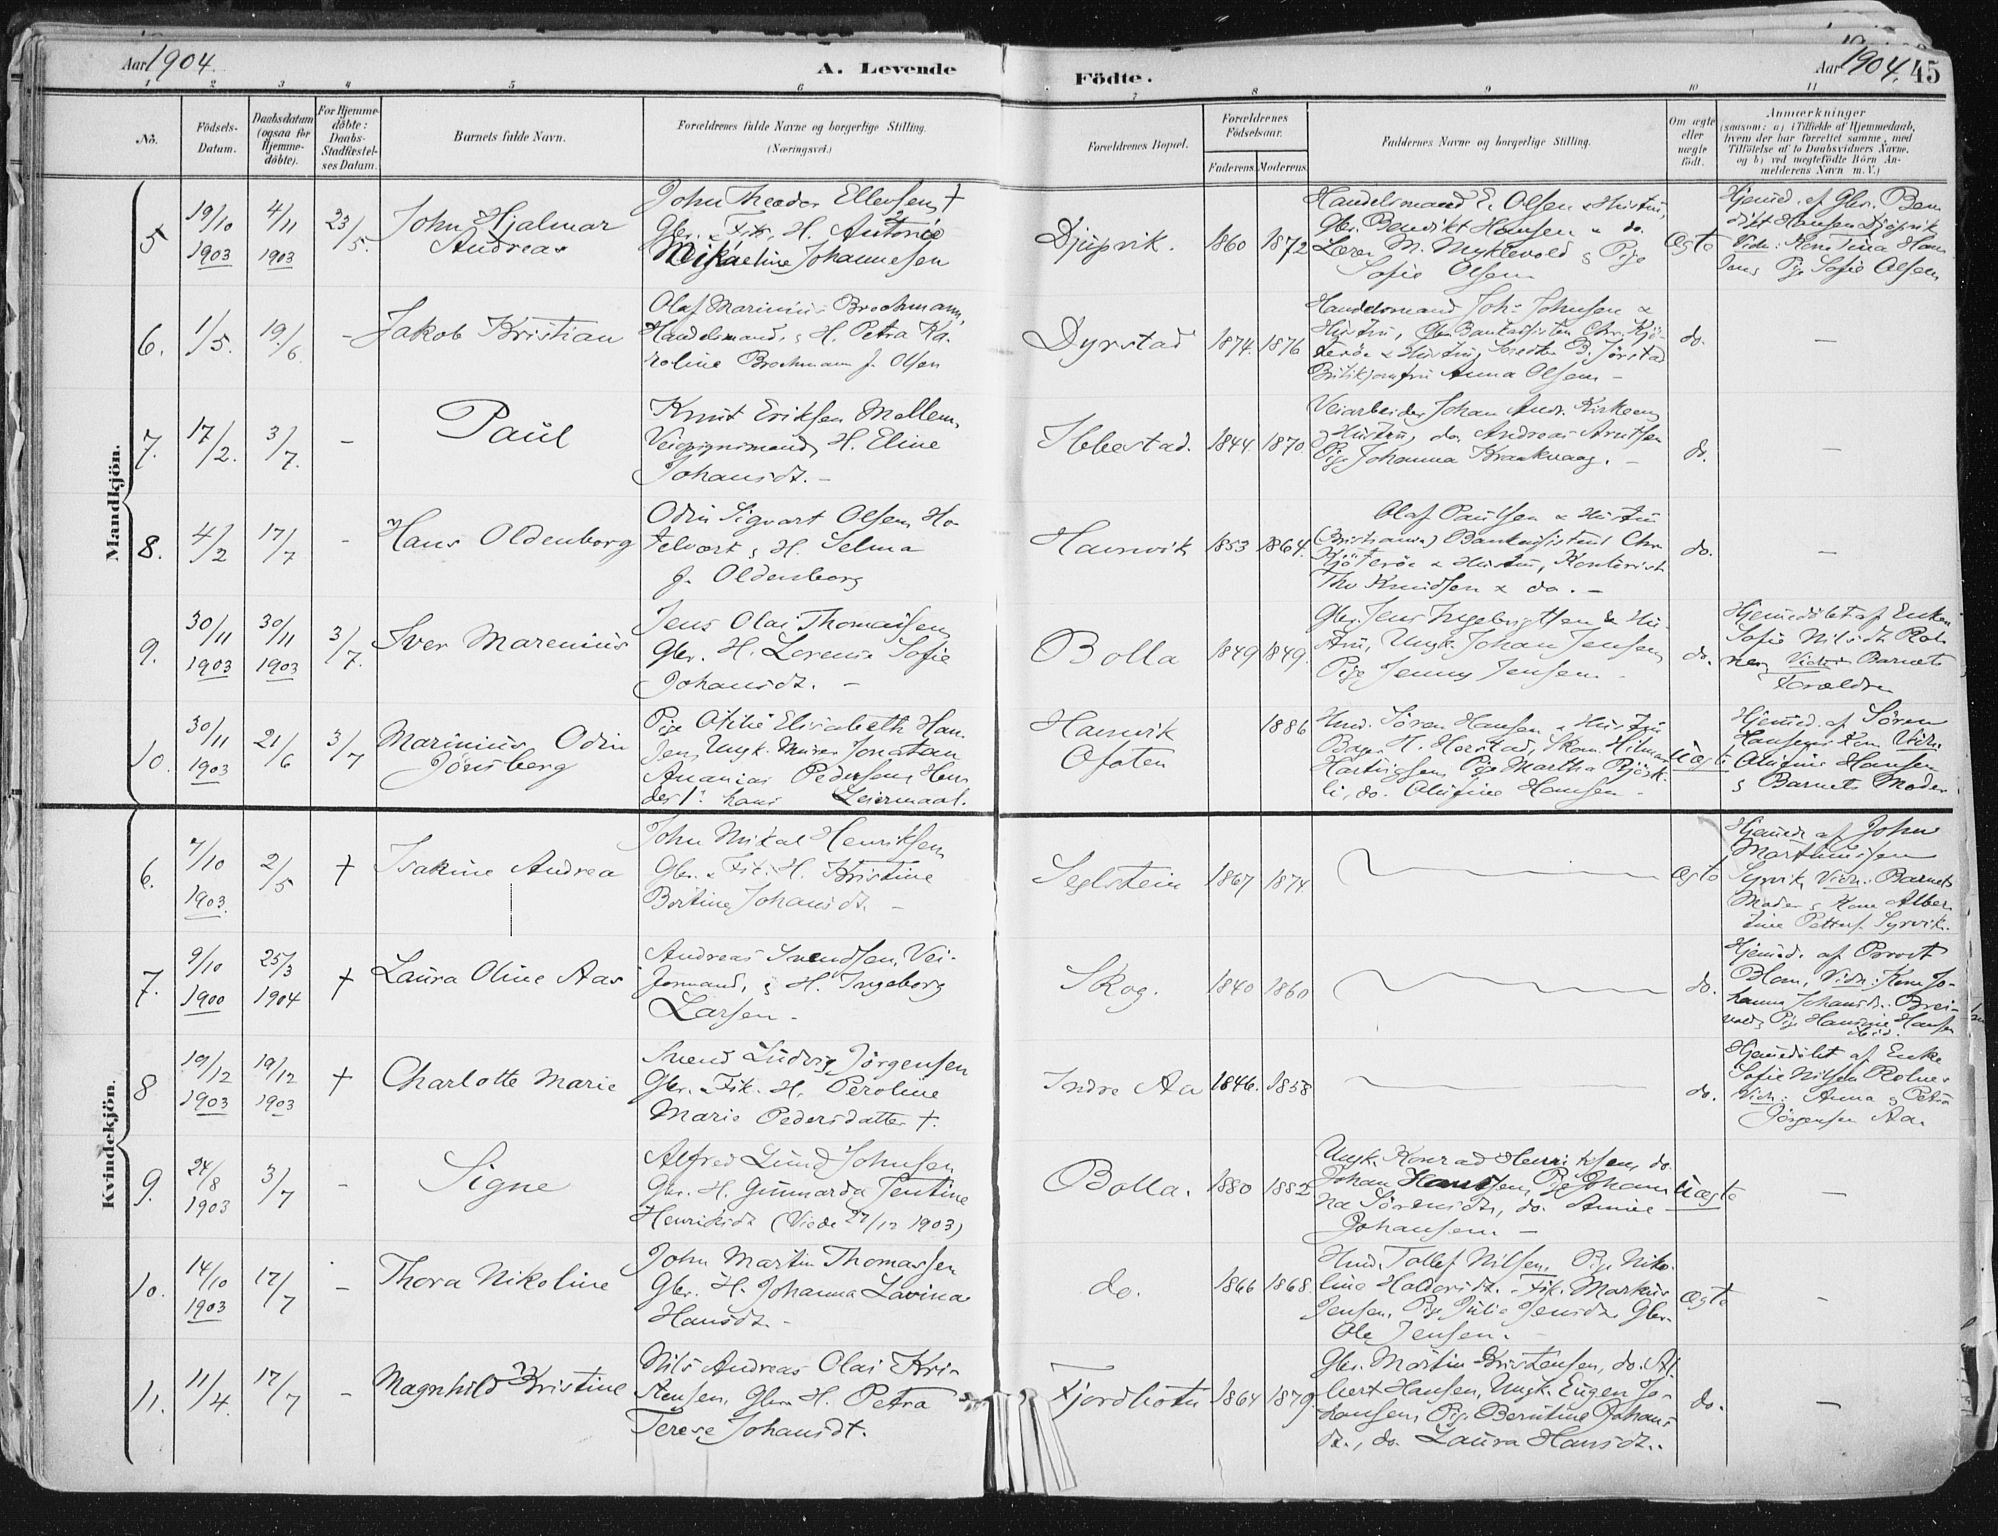 Aar 1904.
A. Levende
Födte.
Aar 1904. 45
1 2 3 4 5 6 7 8 9 10 11
No.
Födsels-
Datum.
Daabsdatum
(ogsaa for
Hjemme-
döbte).
For Hjemme-
döbte:
Daabs-
Stadfæstel-
ses Datum.
Barnets fulde Navn.
Forældrenes fulde Navne og borgerlige Stilling.
(Næringsvei.)
Forældrenes Bopæl.
Forældrenes
Födselsaar.
Faderens. Moderens.
Faddernes Navne og borgerlige Stilling.
Om ægte
eller
uægte
födt.
Anmærkninger
(saasom: a) i Tilfælde af Hjemmedaab,
hvem der har forrettet samme, med
Tilföielse af to Daabsvidners Navne,
og b) ved uegtefödte Börn An-
melderens Navn m. V.)
Mandkjön.
5
19/10
1903
4/11
1903
23/5.
John Hjalmar
Andreas
John Theodor Ellevsen, +
Gbr. & Fisk, H. Antonie
Mikaeline Johannesen
Djupvik.
1860
1872
Handelsmand E. Olsen & Hustru,
Gbr. Benedikt Hansen & do.
Lærer M. Myklevold & Pige
Sofie Olsen
Ægte
Hjemmed. af Gbr. Ben
dikt Hansen Djupvik
Vidn: Hans
sens Pige Sofie Olsen
6.
1/5.
19/6.
-
Jakob Kristian
Olaf Marinius Brochmann,
Handelsmand, & H. Petra Ka-
roline Brochmann f. Olsen
Dyrstad
1874.
1876
Handelsmand Joh: Johnsen &
Hustru, Bankassistent Chr. Kjö-
teröe & Hustru, B. Jörstad
Butikjomfru Anna Olsen -
do.
-
7.
17/2.
3/7.
-
Paul
Knut Eriksen Mellem,
H. Eline
Johansdt. -
Ibbestad.
1844.
1870
Veiarbeider Johan Andr. Kirkeeng
& Hustru, do. Andreas Arntsen
Pige Johanna Kraakvaag. -
do.
-
8.
4/2
17/7
-
Hans Oldenborg
Odin Sigvart Olsen, Ho
telvært & H. Selma
f. Oldenborg
Havnvik
1853
1864.
Olaf Paulsen & Hustru
(Kristiania) Bankassistent Chr.
Kjöteröe & Hustru, Kontorist
Thv Knudsen & do. -
do.
-
9.
30/11
1903
30/11
1903
3/7.
Iver Marenius
Jens Olai Thomassen
Gbr. H. Lorense Sofie
Johansdt. -
Bolla
1849
1849.
Gbr. Jens Ingebrigtsen & Hu-
stru, Ungk. Johan Jensen,
Pige Jenny Jensen -
do.
Hjemmedöbt af Enken
Sofie Nilsdt. Rol
nes, Vidn: Barnets
Forældre
10.
30/11
1903
21/6
3/7
Marinius Odin
Jönsberg
Pige Otilie Elisabeth Han
sen, Ungk. Murer Jonatan
Ananias Pedersen, Hen
des 1. hans Leiermaal.
Havnvik
Ofoten
1886
Hmd. Sören Hansen & Hustru
Bager H. Horstad, Skom. Hilmar
Hartvigsen, Pige Martha Bjösk
li, do. Alufine Hansen -
Uægte
Hjemmed. af Sören
Hansens Kone Vidn.
Alufine Hansen
& Barnets Moder.
Kvindekjön.
6.
7/10
1903.
2/5
+
Isakine Andrea
John Mikal Henriksen,
Gbr. & Fisk. H. Kristine
Bortine Johansdt. -
Seglstein
1867
1874
Ægte
Hjemmed. af John
Marthinussen
Syrvik Vidn: Barnets
Moder & Kone Alber
tine Petters. Syrvik.
7.
9/10
1900
25/3
1904
+
Laura Oline Aas
Andreas Svendsen, Vei-
formand, & H. Ingeborg
Larsen -
Skog.
1840
1860
do.
Hjemmed. af Provst
Blom, Vidn: Kone Jo-
hanna Johansdt. Brei-
vold, Pige Hansine Hansen
ibid.
8
19/12
1903
19/12
1903
+
Charlotte Marie
Svend Ludvig Jörgensen
Gbr. & Fisk. H. Peroline
Marie Pedersdatter +.
Indre Aa
1846.
1858
do.
Hjemmedöbt af Enke
Sofie Nilsen Rolnes
Vidn: Anna & Petra
Jörgensen Aa.
9.
24/8
1903
3/7
-
Signe
Alfred Lund Johnsen
Gbr. H. Gunnarda Pentine
Henriksdt (Viede 27/12 1903)
Bolla.
1880
1882
Ungk. Konrad Henriksen, do.
Johan Hansen, Pige Johan
na Sörensdt, do. Annie
Johansen -
Uægte
-
10.
14/10
1903
17/7
-
Thora Nikoline
John Martin Thomassen
Gbr. H. Johanna Lavina
Hansdt. -
do.
1866
1868.
Hmd. Tollef Nilsen, Pige Niko-
line Haldorsdt., Fisk. Markus
Jensen, Pige Julie Jensdt. Gbr.
Ole Jensen. -
Ægte
-
11.
11/4.
17/7
-
Magnhild Kristine
Nils Andreas Olai Kri-
stensen, Gbr. H. Petra
Terese Johansdt.
Fjordbotn
1864
1879.
Gbr. Martin Kristensen, do. Al
bert Hansen, Ungk. Eugen Jo-
hansen, Pige Berntine Johans
dt., do. Laura Hansdt..
do.
-